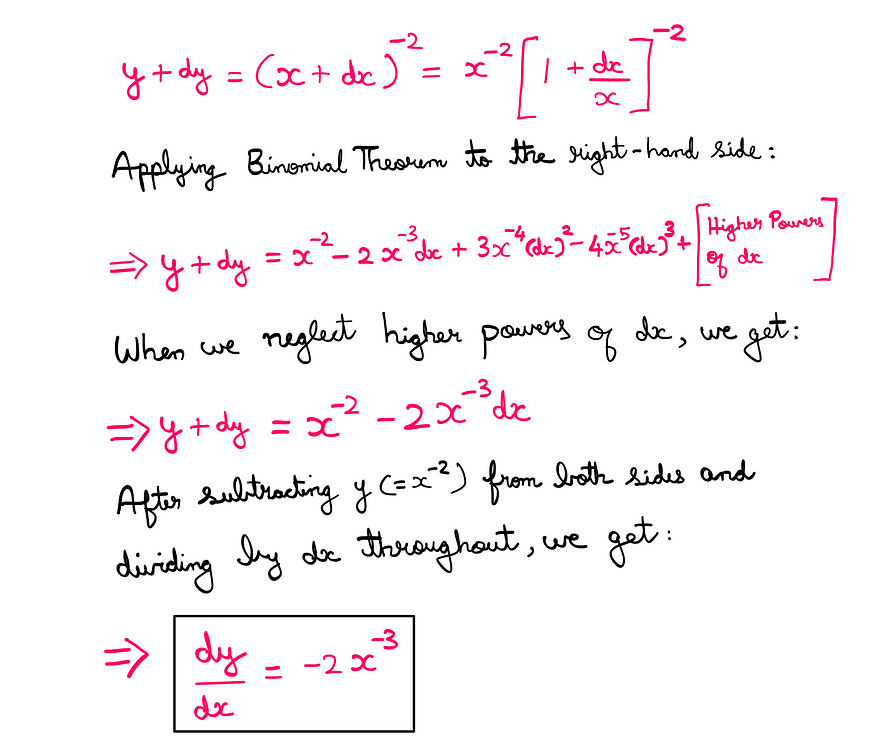 y + dy = (x + dx)⁻² = x⁻² [1 + dx/x]⁻²
Applying Binomial Theorem to the right-hand side:
⇒ y + dy = x⁻² - 2x⁻³dx + 3x⁻⁴(dx)² - 4x⁻⁵(dx)³ + [Higher Powers of dx]
When we neglect higher powers of dx, we get:
⇒ y + dy = x⁻² - 2x⁻³dx
After subtracting y (= x⁻²) from both sides and
dividing by dx throughout, we get:
⇒ dy/dx = -2x⁻³